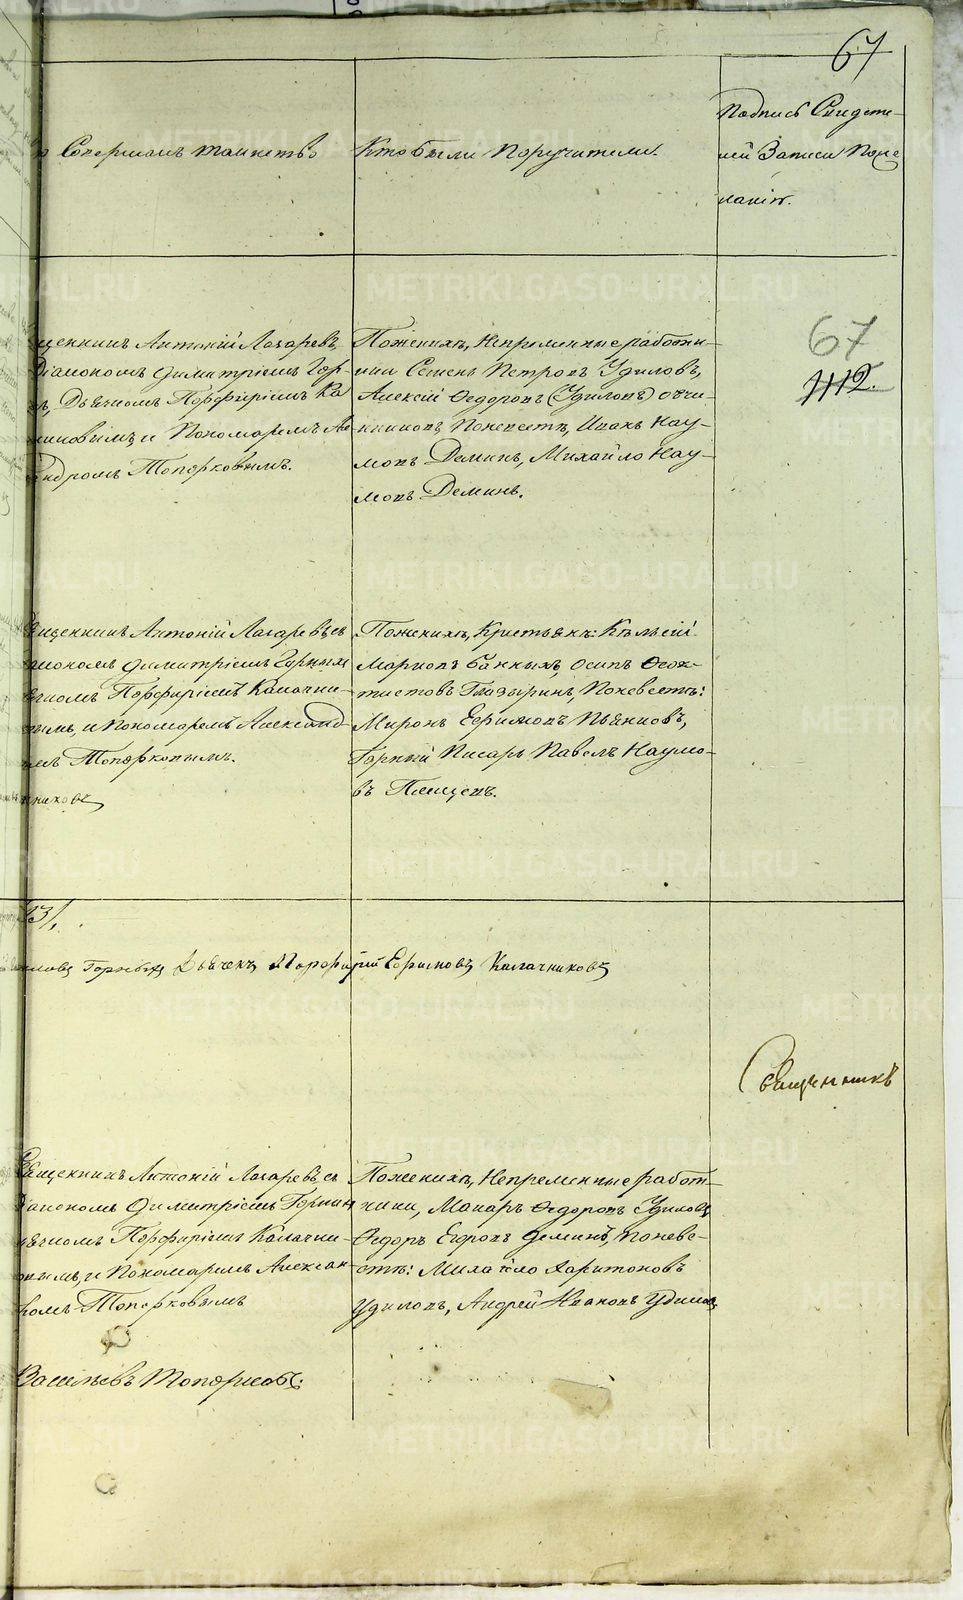 67
Совершалъ таинство
Кто были Поручители.
Подпись Свидете-
лей Записи По же
ланію.
67
1112.
щенникъ Антоній Лазаревъ,
Діакономъ Димитріемъ Гор-
Дьячкомъ Порфиріемъ Ка
чниковымъ, и Пономаремъ Але
ндромъ Топорковымъ.
Пожених, Непременные работни-
ки Семенъ Петровъ Удиловъ,
Алексій Федоровъ (Удиловъ) Овчи-
нниковъ, Поневестѣ, Иванъ Нау-
мовъ Деминъ, Михайло Нау-
мовъ Деминъ.
Священникъ Антоній Лазаревъ съ
іакономъ Димитріемъ Горным
ячкомъ Порфиріемъ Калачни-
вымъ, и Пономаремъ Александ
омъ Топорковымъ.
чниковъ
Пожених, Крестьян:
Маріовъ Банных, Осипъ Феок-
тистовъ Глазыринъ, Поневестѣ:
Миронъ Ефимовъ Пьянковъ,
Горный Писарь Павелъ Наумо-
въ
3/.
Горных Дьячекъ Порфирій Ефимовъ Калачниковъ
Священникъ
Священникъ Антоній Лазаревъ съ
Діакономъ Димитріемъ Горным
ьячкомъ Порфиріемъ Калачни-
овымъ, и Пономаремъ Алексан
ромъ Топорковымъ
Пожених, Непременные работ-
ники, Макаръ Федоровъ Удиловъ
Федоръ Егоровъ Деминъ, поневе-
стѣ: Михайло Харитоновъ
Удиловъ, Андрей Ивановъ Удиловъ
Васильевъ Топорковъ
METRIKI.GASO-URAL.RU